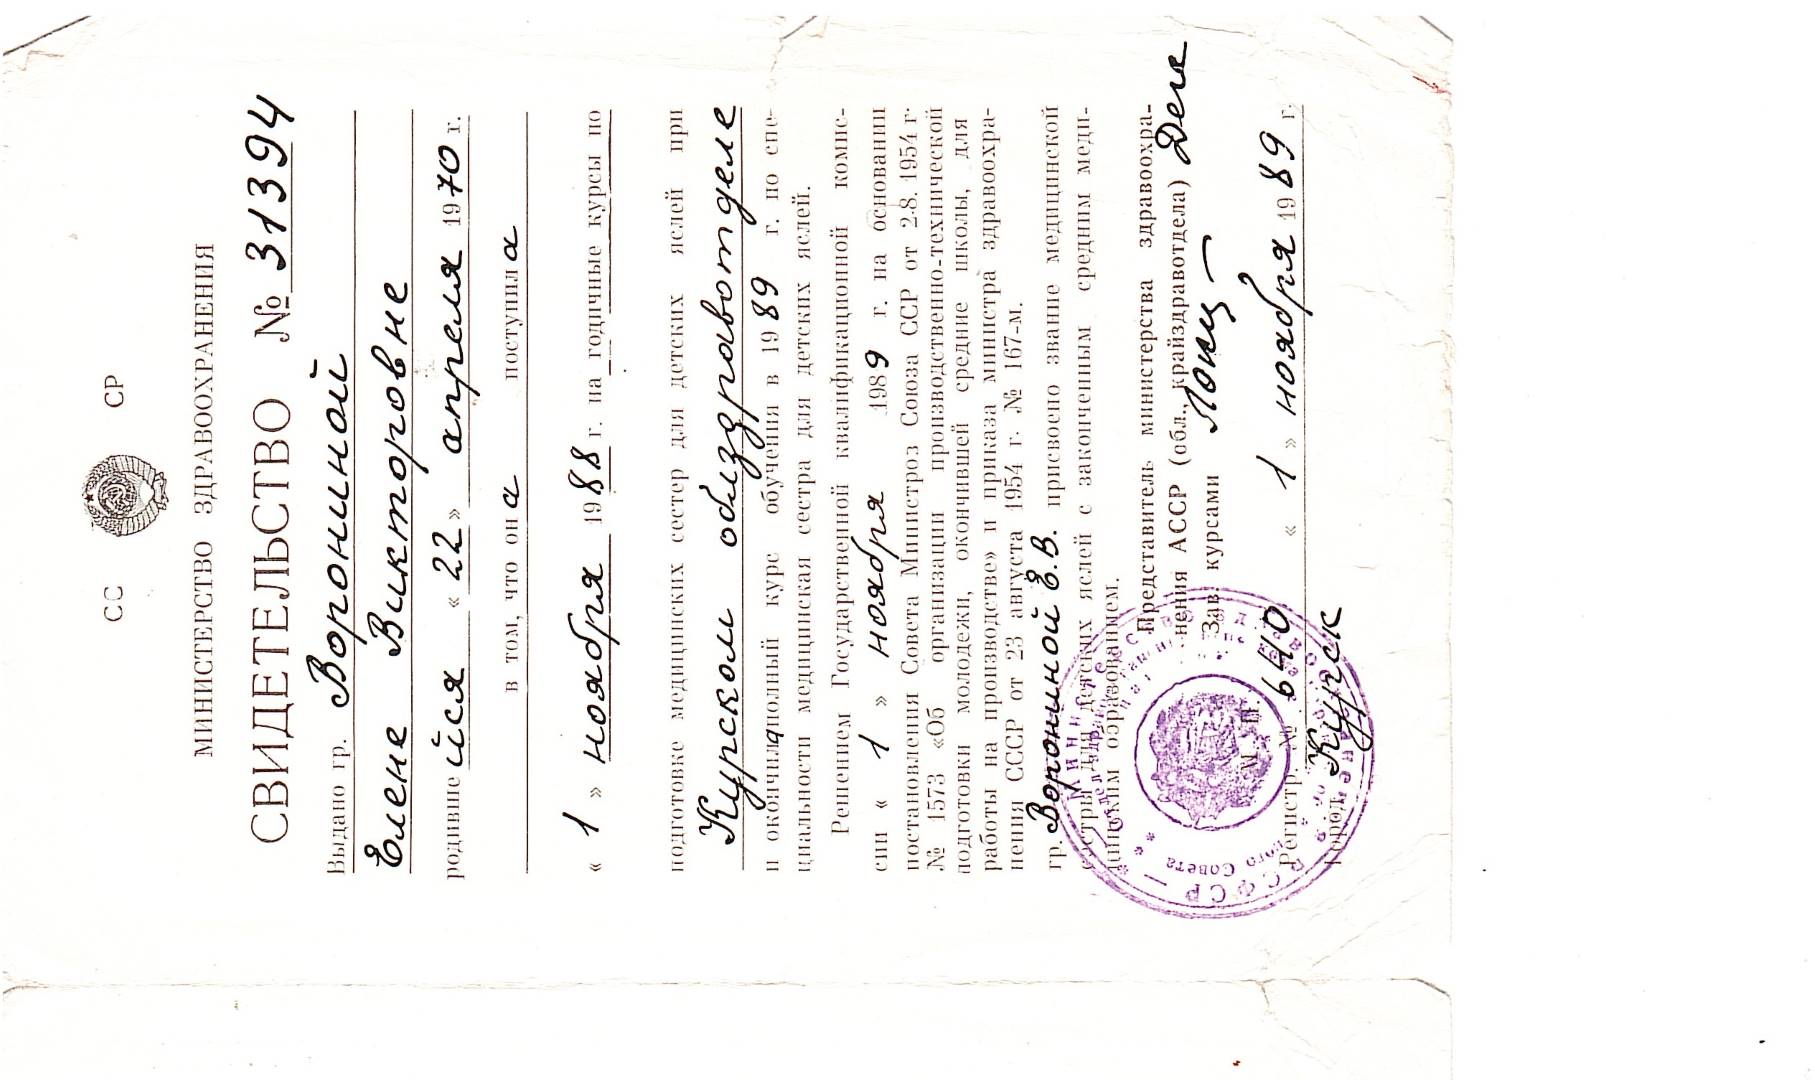 СС СР
МИНИСТЕРСТВО ЗДРАВООХРАНЕНИЯ
СВИДЕТЕЛЬСТВО № 31394
Выдано гр. Ворониной
Елене Викторовне
родившейся « 22 » апреля 1970 г.
в том, что она поступила
« 1 » ноября 1988 г. на годичные курсы по
подготовке медицинских сестер для детских яслей при
Курском облздравотделе
и окончила полный курс обучения в 1989 г. по спе-
циальности медицинская сестра для детских яслей.
Решением Государственной квалификационной комис-
сии « 1 » ноября 1989 г. на основании
постановления Совета Министров Союза ССР от 2.8.1954 г.
№ 1573 «Об организации производственно-технической
подготовки молодежи, окончившей средние школы, для
работы на производстве» и приказа министра здравоохра-
нения СССР от 23 августа 1954 г. № 167-м.
гр. Ворониной Е.В. присвоено звание медицинской
сестры для детских яслей с законченным средним меди-
цинским образованием.
Представитель министерства здравоохра-
нения АССР (обл., крайздравотдела)
Зав. курсами
М. П.
Регистр. № 640 « 1 » ноября 1989 г.
город Курск